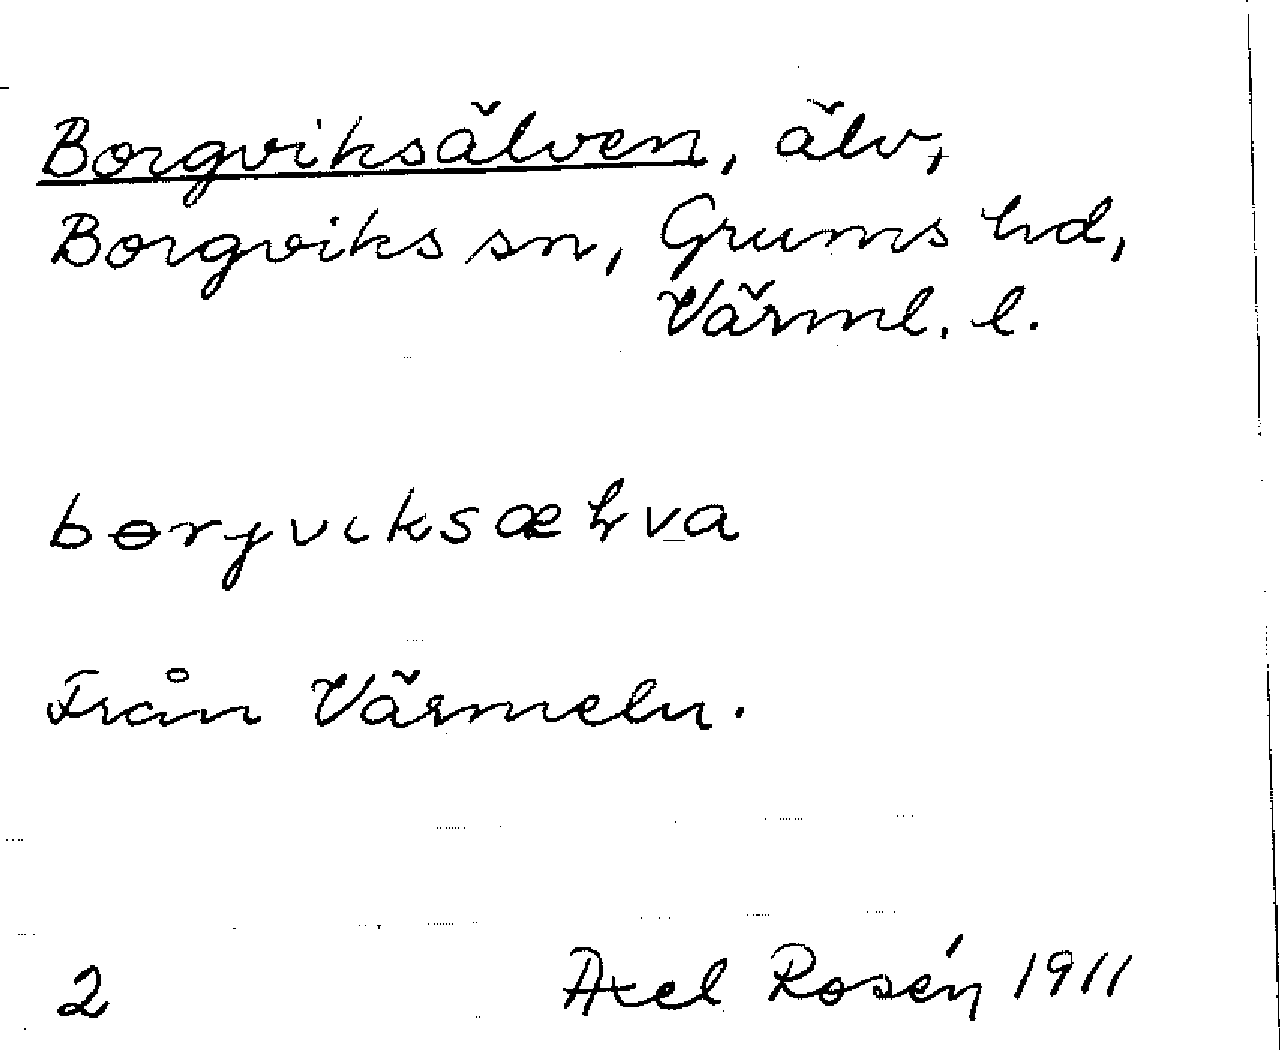 Borgviksälven, älv,
Borgviks sn, Grums hd,
Värml. l.
bɵrjviksæɫva
Från Värmeln.
2 Axel Rosén 1911